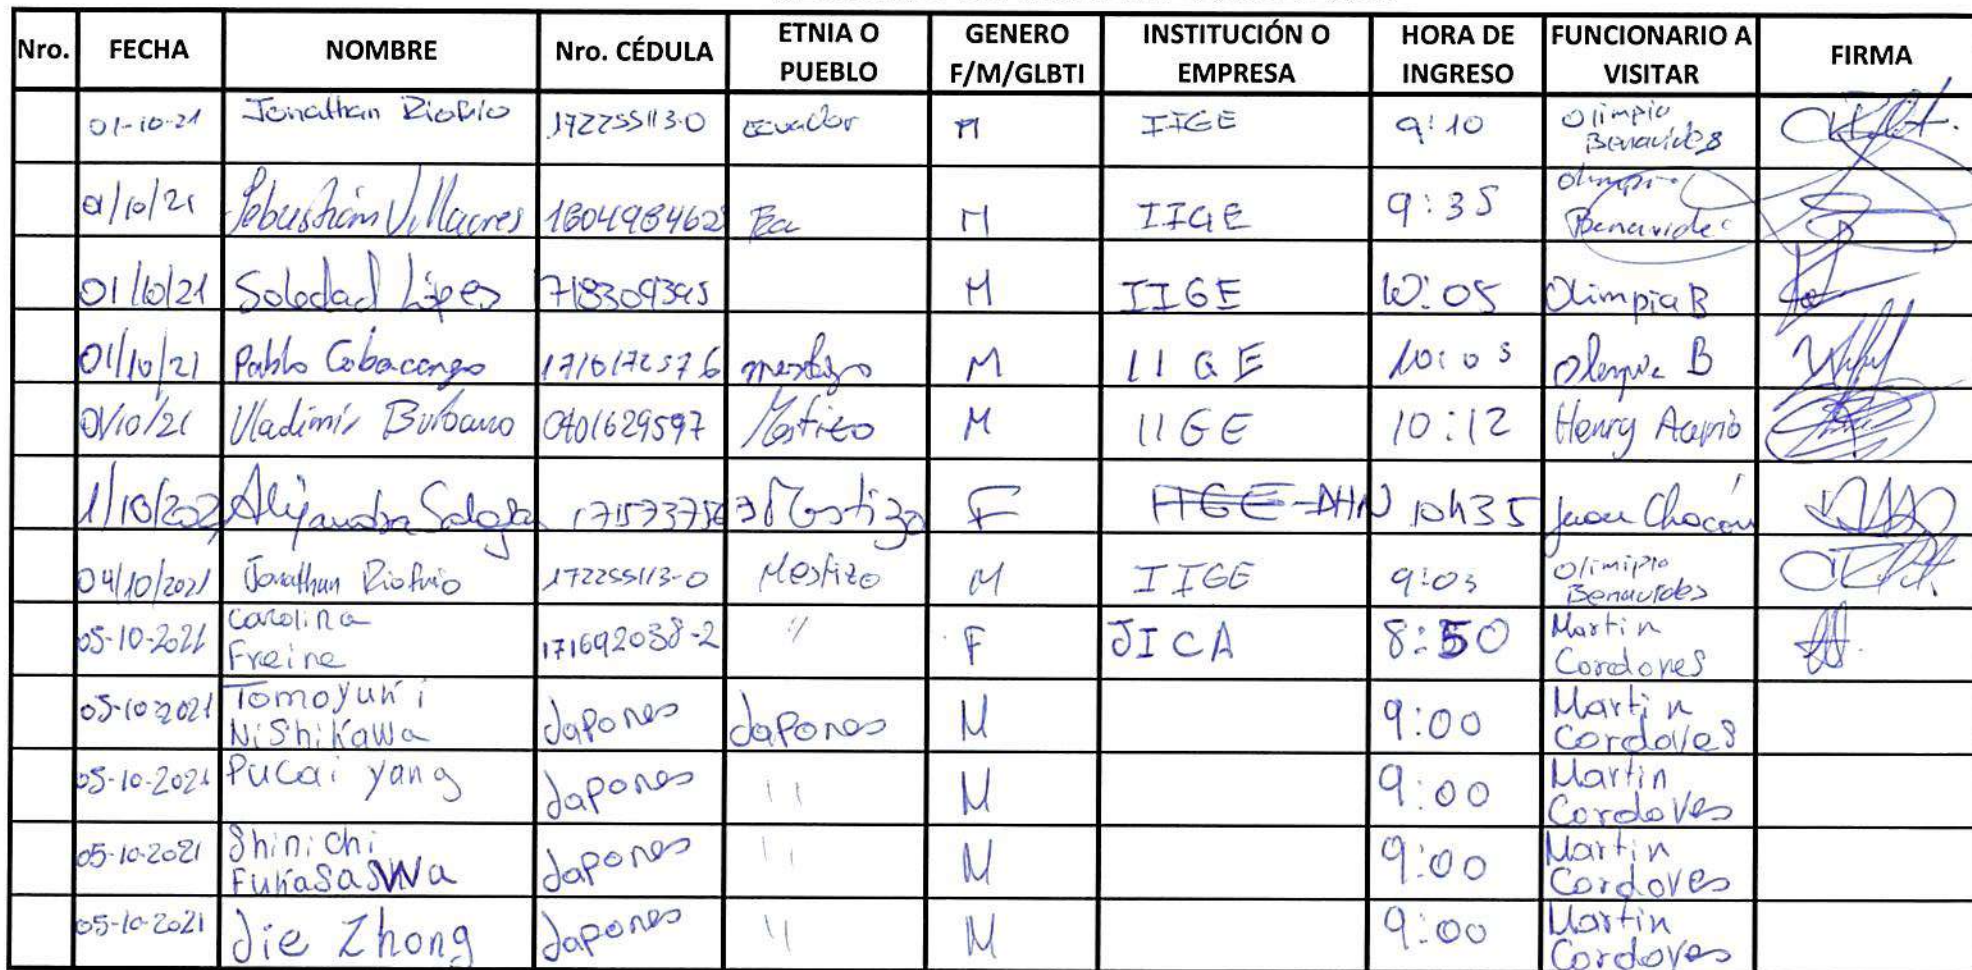 Nro. FECHA NOMBRE Nro. CÉDULA ETNIA O PUEBLO GENERO F/M/GLBTI INSTITUCIÓN O EMPRESA HORA DE INGRESO FUNCIONARIO A VISITAR FIRMA
01-10-21 Jonathan Riofrio 172255113-0 ecuador M IIGE 9:10 Olimpio Benavides
01/10/21 Sebastián Villacres 1804984628 Ec M IIGE 9:35 Olimpia Benavides
01/10/21 Soledad López 718309395 M IIGE 10:05 Olimpia B
01/10/21 Pablo 1716172576 mestizo M IIGE 10:05 B
01/10/21 Vladimir Burbano 0401629597 Mestizo M IIGE 10:12 Henry
1/10/202 Alejandra 10h35 F Juan Chacón
04/10/2021 Jonathan Riofrio 172255113-0 Mestizo M IIGE 9:03 Olimipio Benavides
05-10-2021 Carolina Freire 171692038-2 " F JICA 8:50 Martin Cordoves
05-10-2021 Tomoyuki Nishikawa Japones Japones M 9:00 Martin Cordoves
05-10-2021 Pucai yang Japones " M 9:00 Martin Cordoves
05-10-2021 Shinichi Fukasaswa Japones " M 9:00 Martin Cordoves
05-10-2021 Jie Zhong Japones " M 9:00 Martin Cordoves